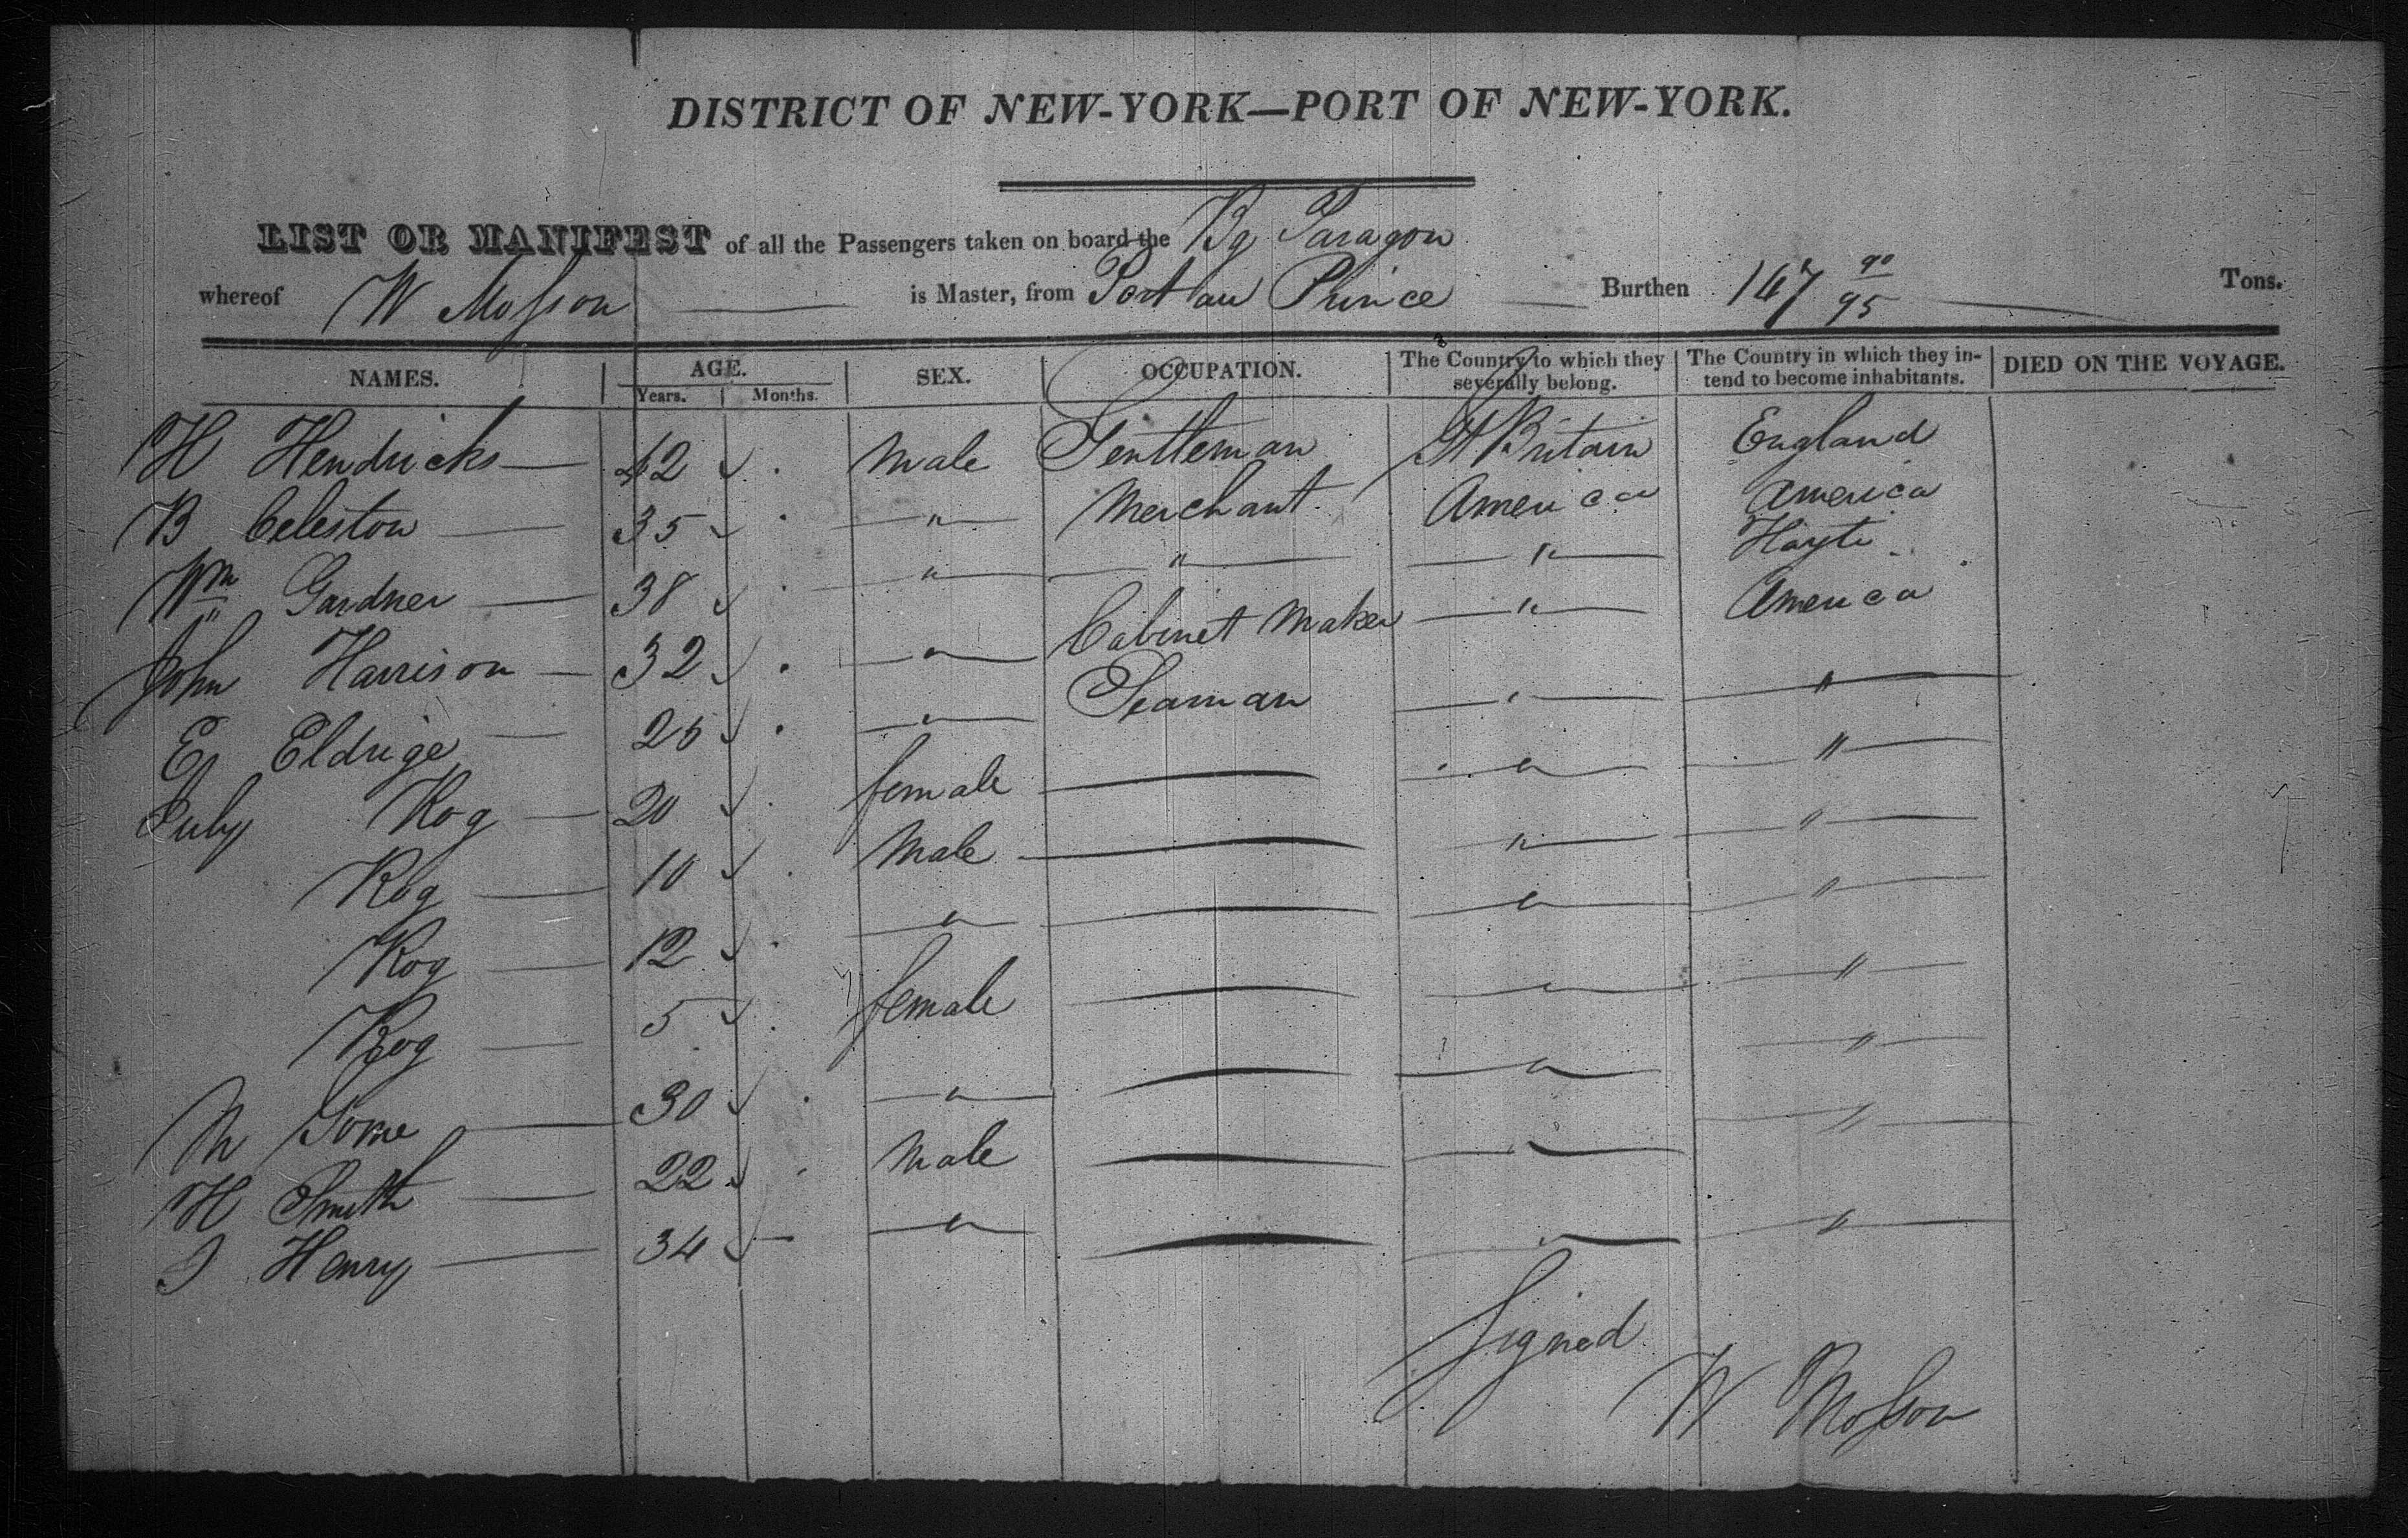 DISTRICT OF NEW-YORK—PORT OF NEW-YORK.
LIST OR MANIFEST of all the Passengers taken on board the Bg Paragon
whereof W Mosson is Master, from Port au Prince Burthen 147 90/95 Tons.
NAMES. AGE. Years. Months. SEX. OCCUPATION. The Country to which they severally belong. The Country in which they intend to become inhabitants. DIED ON THE VOYAGE.
H Hendricks 42 Male Gentleman Gt Britain England
B Celeston 35 " Merchant America America
Wm Gardner 38 " " " Hayti
John Harrison 32 " Cabinet Maker " America
E Eldrige 26 " Seaman " "
July Kog 20 female " "
Kog 10 Male " "
Kog 12 " " "
Kog 5 female " "
M 30 " " "
H Smith 22 Male " "
J Henry 34 " " "
Signed
W Mosson